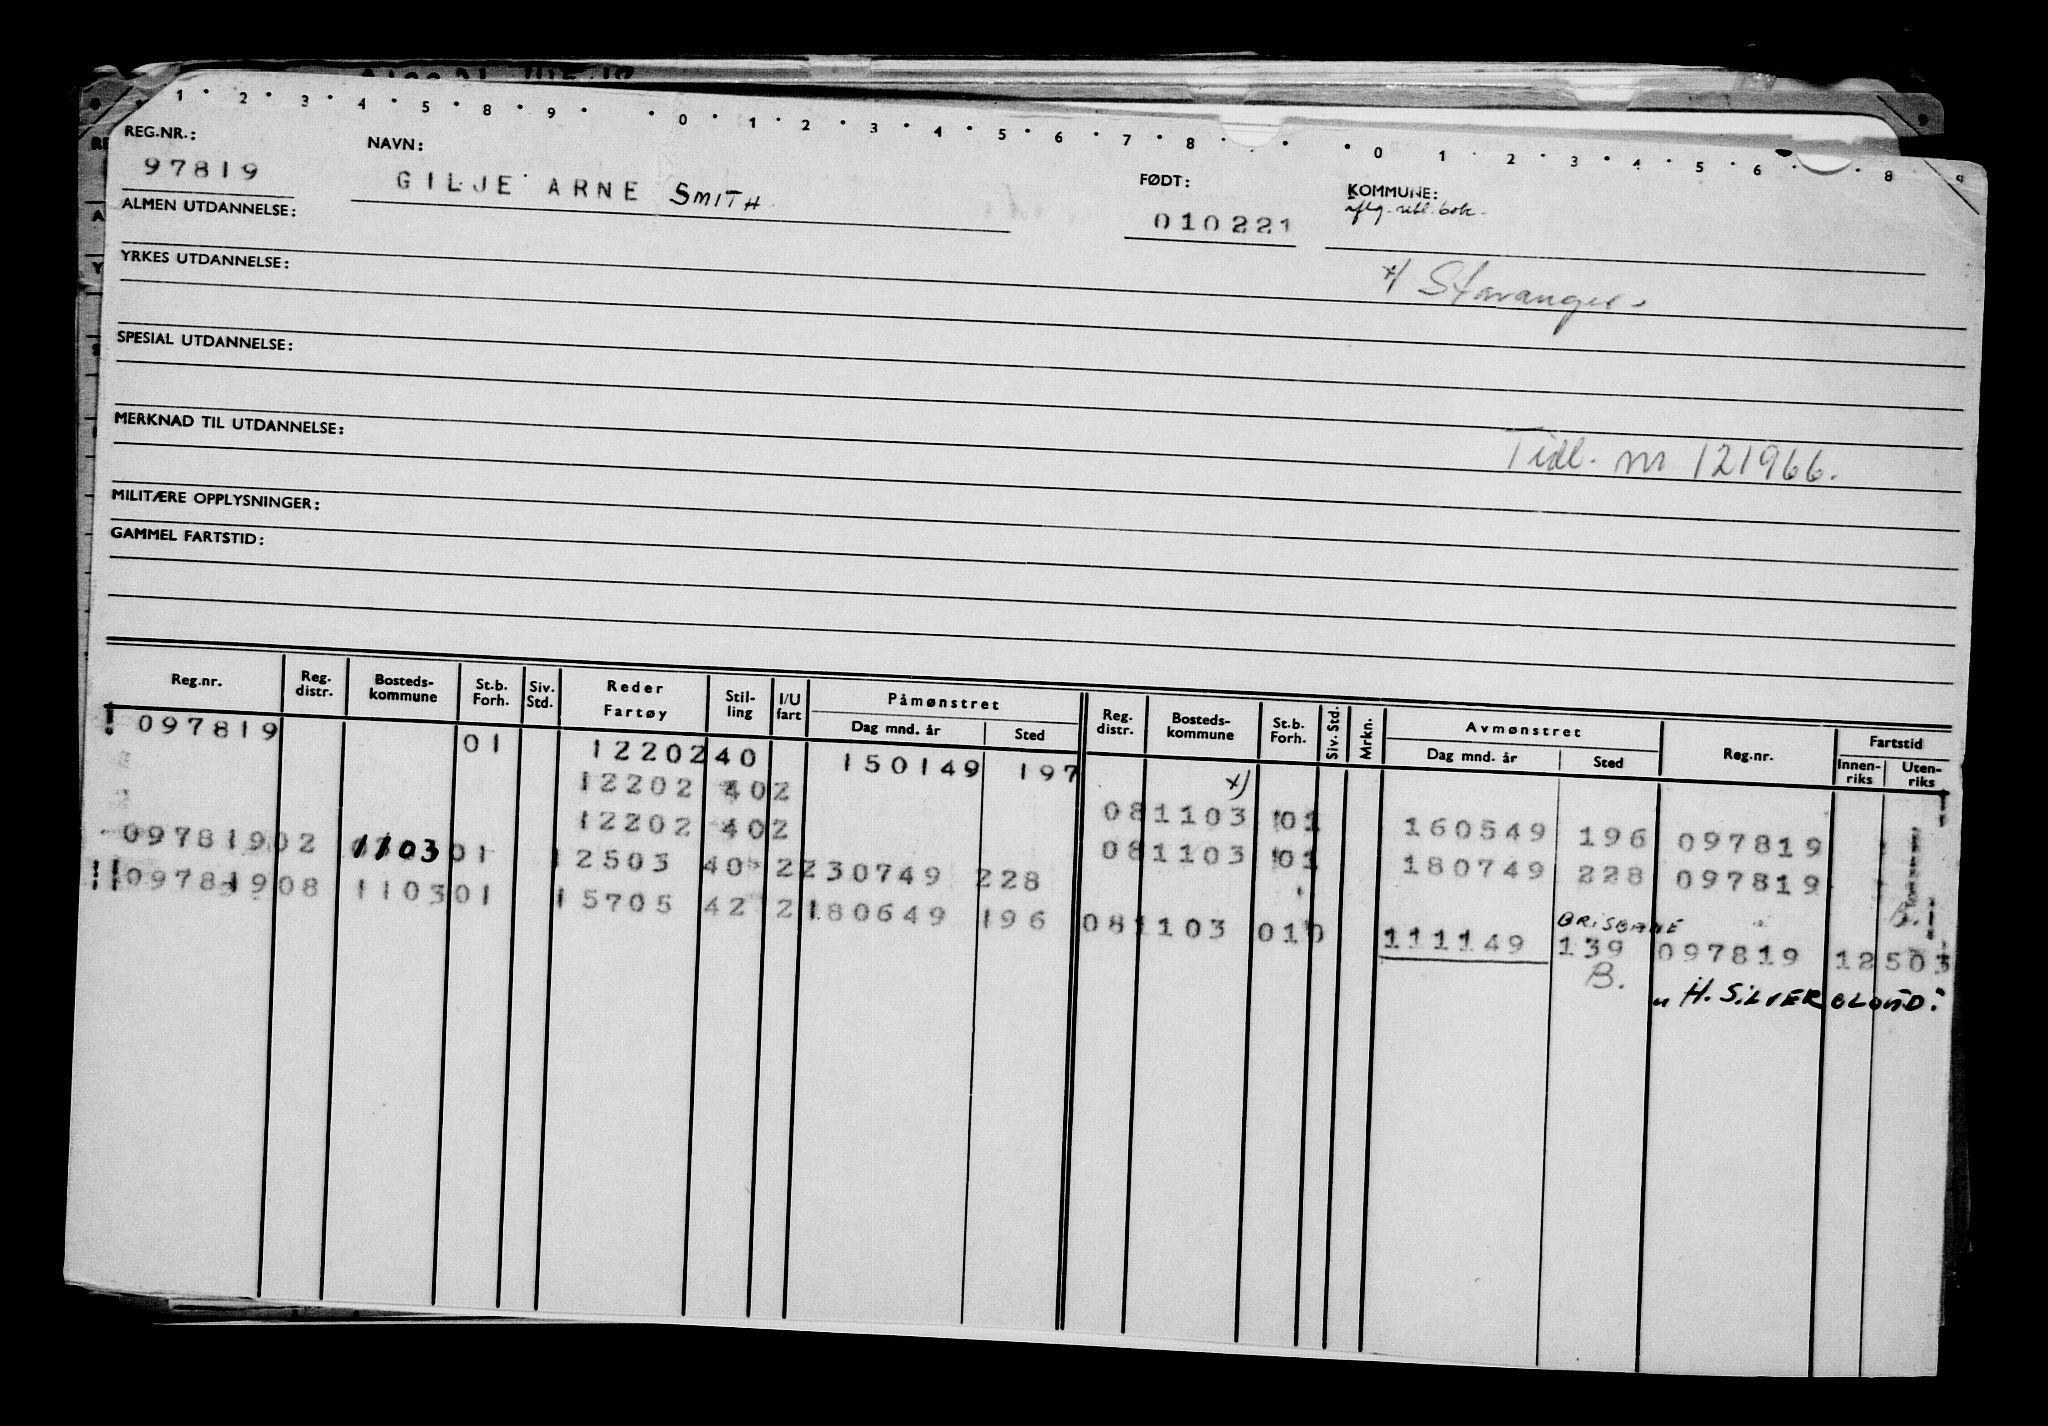 1 2 3 4 5 8 9 0 1 2 3 4 5 6 7 8 0 1 2 3 4 5 6 8 9
REG.NR.: NAVN: FØDT: KOMMUNE:
97819 GILJE ARNE SMITH 010221
ALMEN UTDANNELSE:
YRKES UTDANNELSE:
x/ Stavanger
SPESIAL UTDANNELSE:
MERKNAD TIL UTDANNELSE:
Tidl. nr 121966.
MILITÆRE OPPLYSNINGER:
GAMMEL FARTSTID:
Reg.nr. Reg. distr. Bosteds-kommune St.b. Forh. Siv. Std. Reder Fartøy Stil-ling I/U fart Påmønstret Dag mnd. år Sted Reg. distr. Bosteds-kommune St.b. Forh. Siv. Std. Mrkn. Avmønstret Dag mnd. år Sted Reg.nr. Fartstid Innen-riks Uten-riks
097819 01 12202 40 150149 197
12202 40 2 x) 08 1103 01 160549 196 097819
12202 40 2 08 1103 01 180749 228 097819
097819 02 1103 01 12503 40 2 230749 228 B.
097819 08 1103 01 15705 42 2 180649 196 08 1103 010 111149 139 097819 12503
BRISBANE
B.
" H. SILVERCLOUD: